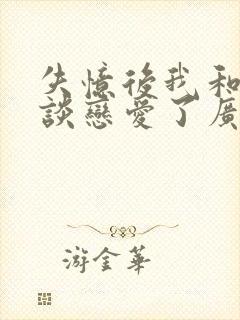 失憶後我和
談戀愛了廣
游金華